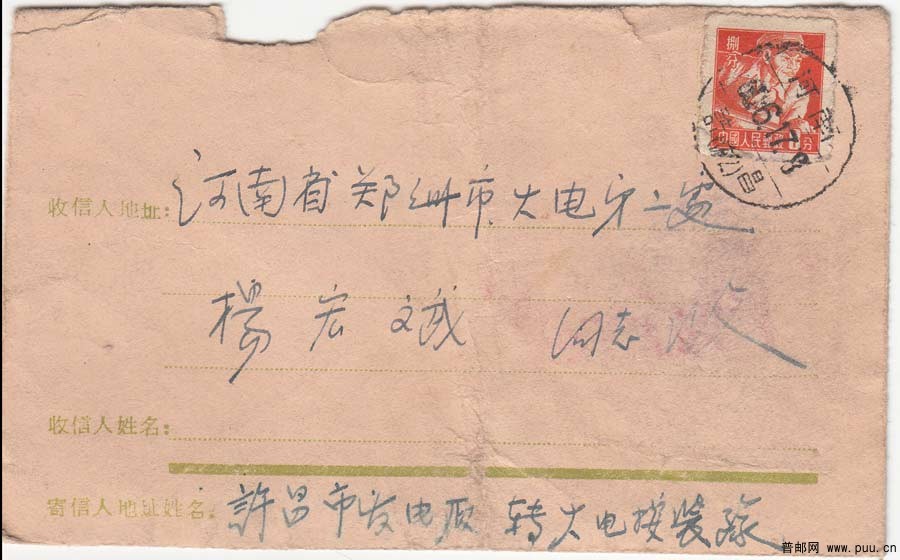 捌分
中國人民郵政 8分
河南
收信人地址: 河南省郑州市火电第二处
楊宏斌 同志 收
收信人姓名:
寄信人地址姓名: 許昌市发电厂 转火电按装队
普邮网 www.puu.cn